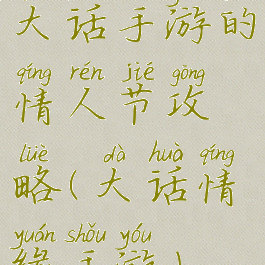 大话手游的
qíng rén jié gōng
情人节攻
lüè dà huà qíng
略(大话情
yuán shǒu yóu
缘手游)